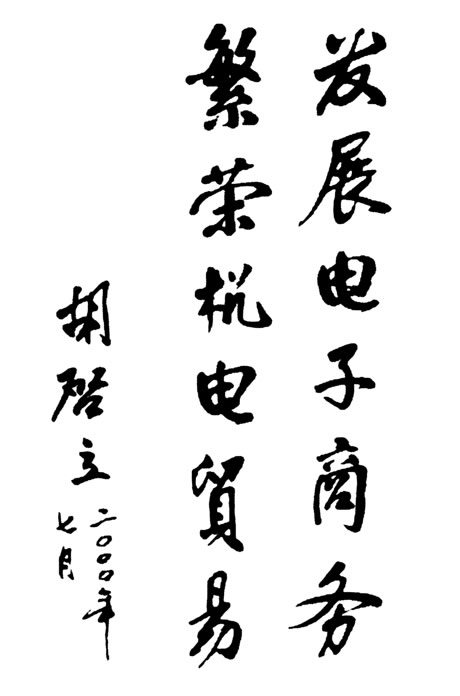 发展电子商务
繁荣机电貿易
胡啓立
二〇〇〇年
七月